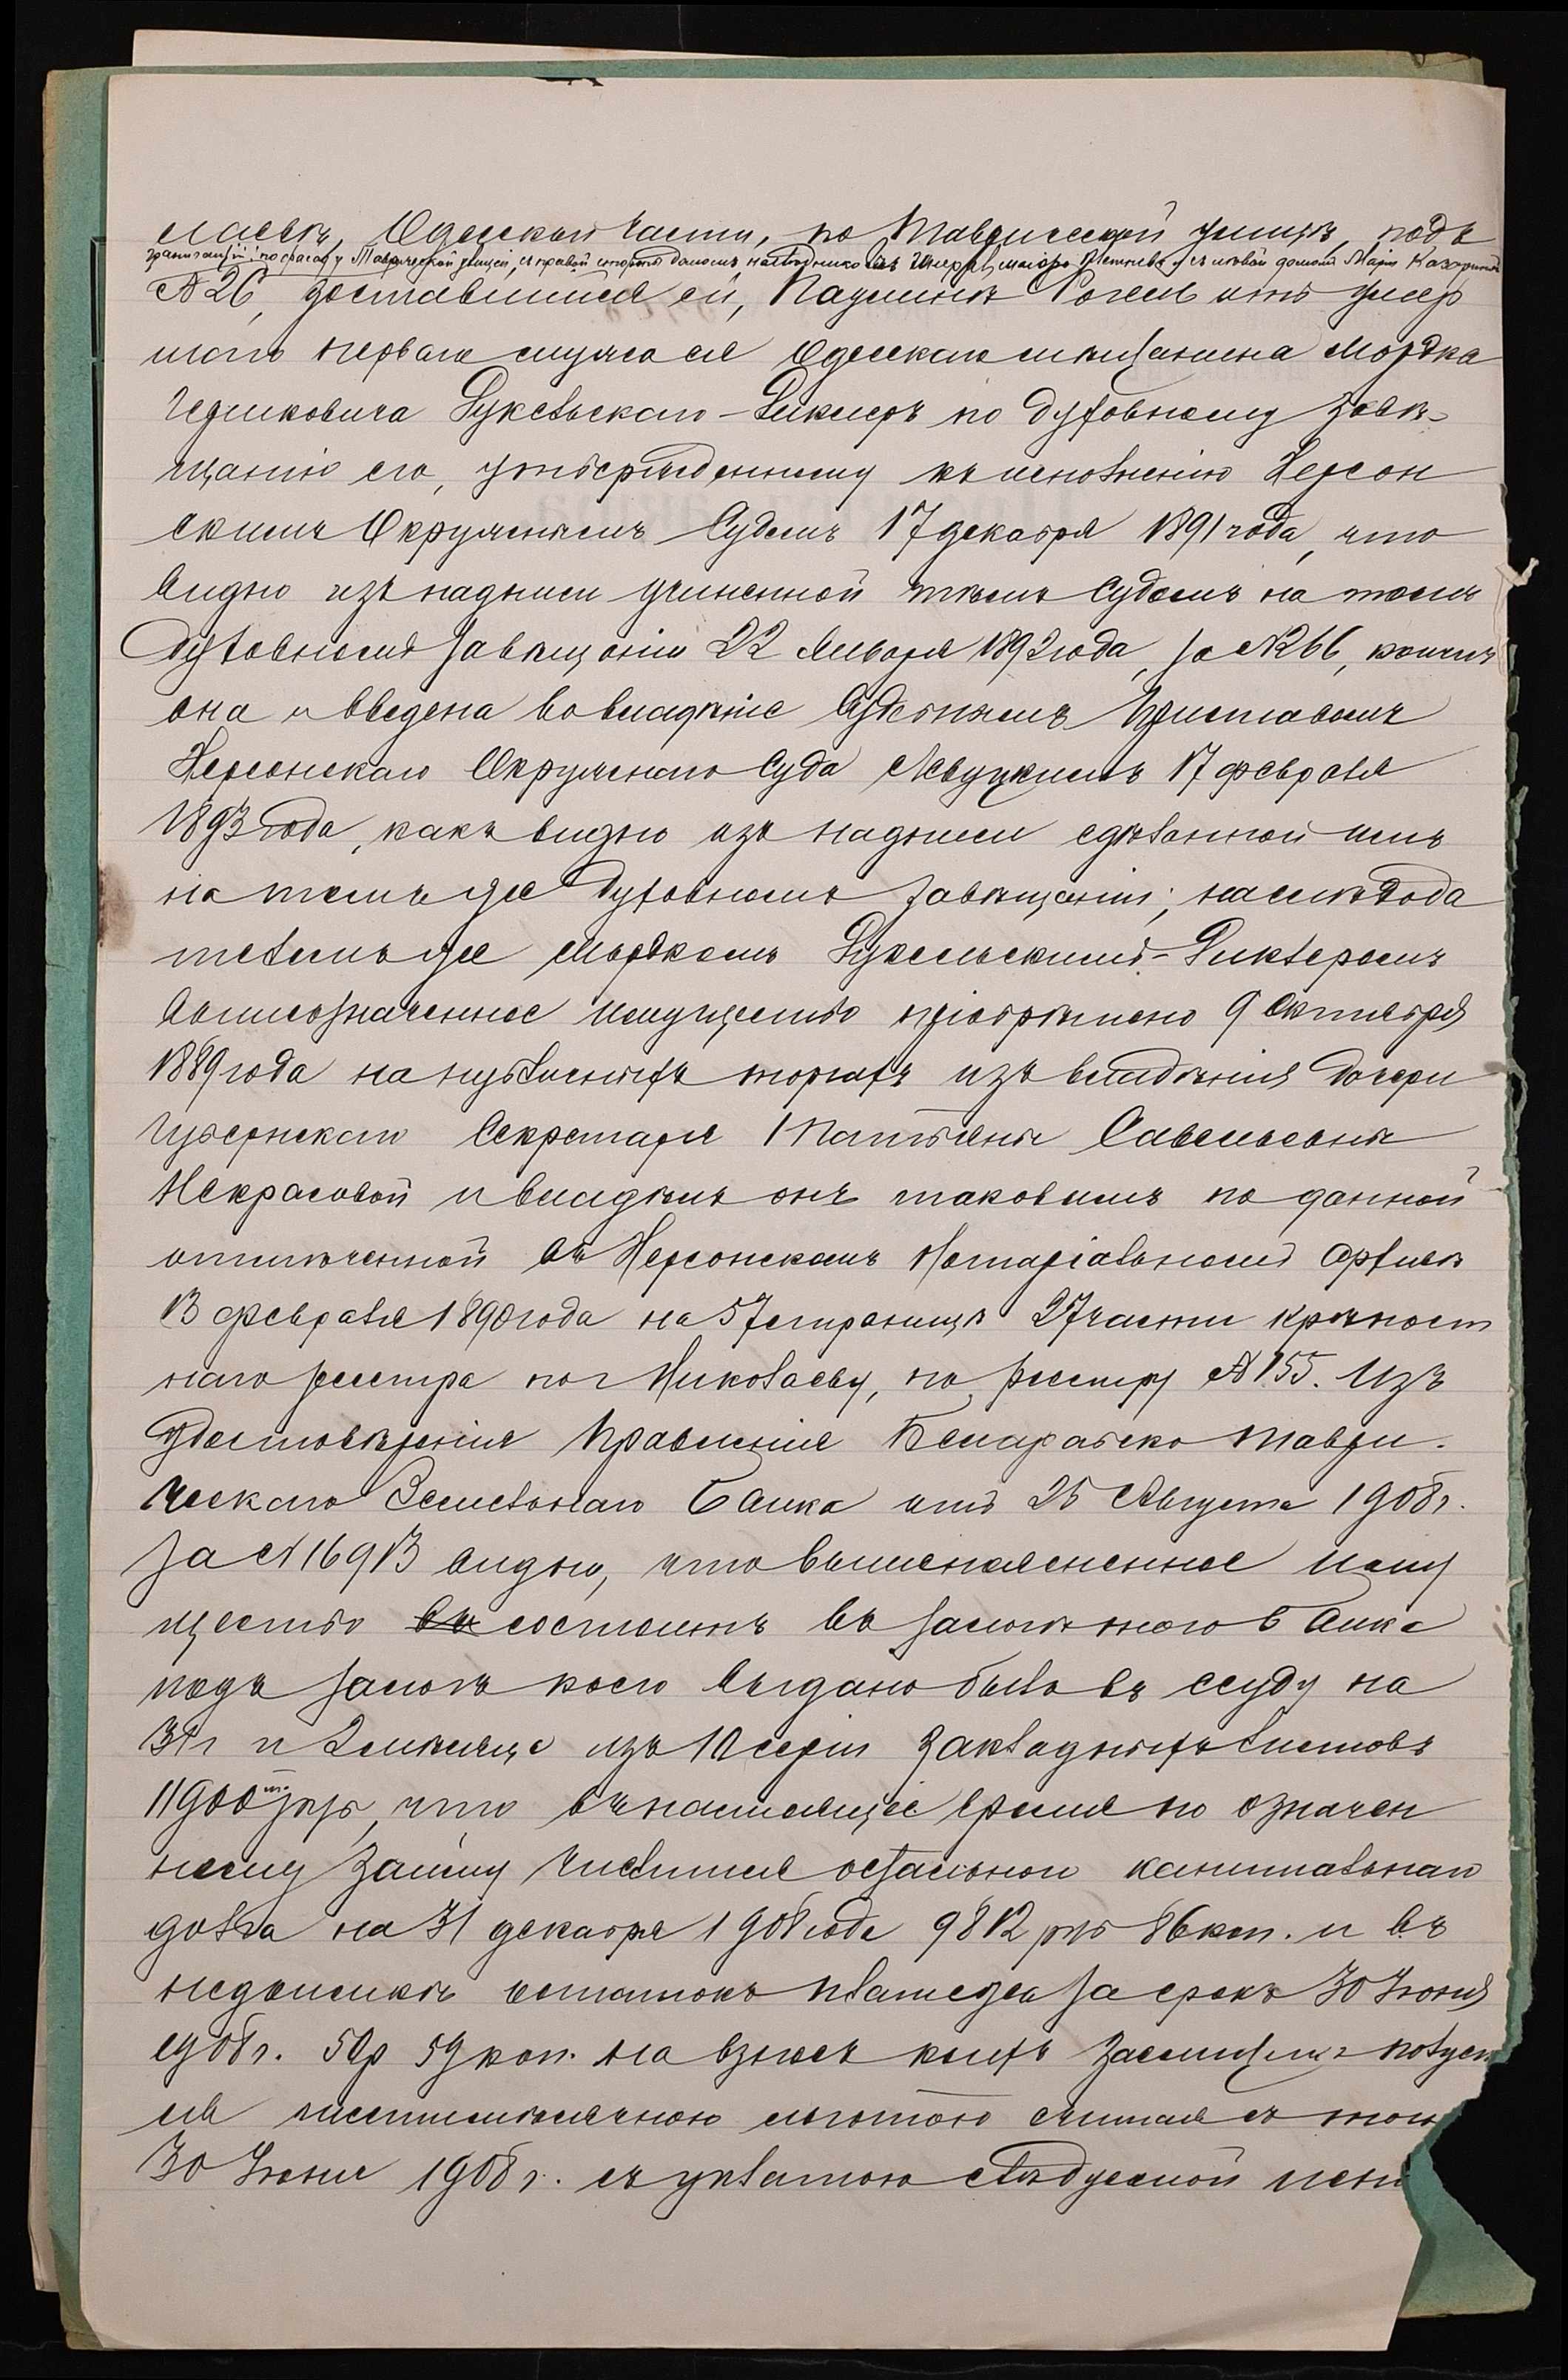 лаевѣ, Одесской части, по Таврической улицѣ, подъ
граничащій: по фасаду Таврической улицей, съ правой стороны домомъ наслѣдниковъ Генералъ маіора и съ лѣвой домомъ Маріи
№ 26, доставшимся ей, Паулинѣ Рогель отъ умер
шаго перваго мужа ея Одесскаго мѣщанина Мордка
Рукельскаго-Риклеръ по духовному завѣ-
щанію его, утвержденному къ исполненію Херсон
скимъ Окружнымъ Судомъ 17 декабря 1891 года, что
видно изъ надписи учиненной тѣмъ Судомъ на томъ
духовномъ завѣщаніи 22 Января 1892 года, за № 266, коимъ
она и введена во владѣніе Судебнымъ Приставомъ
Херсонскаго Окружнаго Суда Левуцкимъ 17 февраля
1893 года, какъ видно изъ надписи сдѣланной имъ
на томъ же духовномъ завѣщаніи; наслѣдода
телемъ же Мордкомъ Рукельскимъ-Риклеромъ
вышеозначенное имущество пріобрѣтено 9 Октября
1889 года на публичныхъ торгахъ изъ владѣнія дочери
Губернскаго Секретаря Татьяны Савельевны
Некрасовой и владѣлъ онъ таковымъ по данной
отмѣченной въ Херсонскомъ Нотаріальномъ Архивѣ
13 февраля 1890 года на 57 страницѣ 27 части крѣпост
наго реестра по г Николаеву, по реестру № 155. Изъ
удостовѣренія Правленія Бессарабско Таври-
ческаго Земельнаго Банка отъ 25 Августа 1908 г.
за № 16913 видно, что вышепоясненное иму
щество состоитъ въ залогѣ этого Банка
подъ залогъ коего выдано было въ ссуду на
и 2 мѣсяца изъ 10 серіи закладныхъ листовъ
11900 руб, что въ настоящее время по означен
ному займу числится остальной капитальнаго
долга на 31 декабря 1908 года 9812 руб 86 коп. и въ
недоимкѣ остатокъ платежа за срокъ 30 Іюня
1908 г. 59 коп. на взносъ коихъ заемщица
ся шестимѣсячною льготою считая съ того
30 Іюня 1908 г. съ уплатою слѣдуемой пени